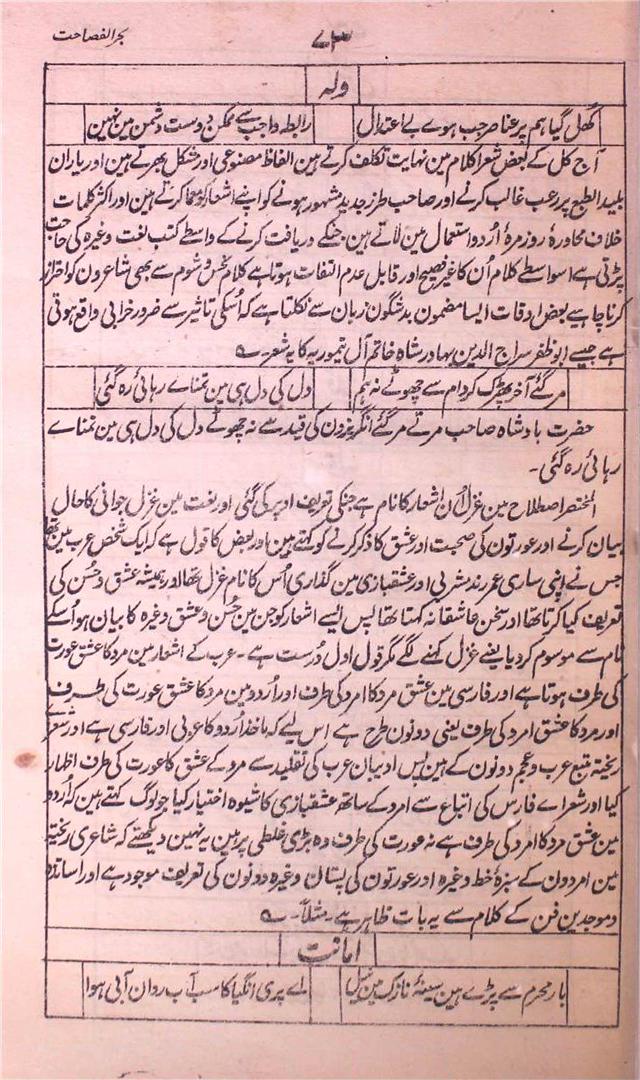 بحر الفصاحت
۷۳
ولہ
کھل گیا ہم پر عناصر جب ہوے بے اعتدال رابطہ واجب سے ممکن دوست دشمن مین نہین
آج کل کے بعض شعرا کلام مین نہایت تکلف کرتے ہین الفاظ مصنوعی اور مشکل بھرتے ہین اور یاران
بلید الطبع پر رعب غالب کرنے اور صاحب طرز جدید مشہور ہونے کو اپنے اشعار کو معما کرتے ہین اور اکثر کلمات
خلاف محاورۂ روزمرۂ اُردو استعمال مین لاتے ہین جنکے دریافت کرنے کے واسطے کتب لغت وغیرہ کی حاجت
پڑتی ہے اسواسطے کلام اُن کا غیر فصیح اور قابل عدم التفات ہوتا ہے کلام نحس و شوم سے بھی شاعرون کو احتراز
کرنا چاہیے بعض اوقات ایسا مضمون بدشگون زبان سے نکلتا ہے کہ اُسکی تاثیر سے ضرور خرابی واقع ہوتی
ہے جیسے ابوظفر سراج الدین بہادر شاہ خاتم آل تیموریہ کا یہ شعر۔ ؎
مر گئے آخر پھڑک کر دام سے چھوٹے نہ ہم دل کی دل ہی مین تمناے رہائی رہ گئی
حضرت بادشاہ صاحب مرتے مر گئے انگریزون کی قید سے نہ چھوٹے دل کی دل ہی مین تمناے
رہائی رہ گئی۔
المختصر اصطلاح مین غزل اُن اشعار کا نام ہے جنکی تعریف اوپر کی گئی اور لغت مین غزل جوانی کا حال
بیان کرنے اور عورتون کی صحبت اور عشق کا ذکر کرنے کو کہتے ہین اور بعض کا قول ہے کہ ایک شخص عرب مین تھا
جس نے اپنی ساری عمر رند مشربی اور عشقبازی مین گذاری اُس کا نام غزل تھا اور ہمیشہ عشق و حُسن کی
تعریف کیا کرتا تھا اور سخن عاشقانہ کہتا تھا پس ایسے اشعار کو جن مین حُسن و عشق وغیرہ کا بیان ہو اُسکے
نام سے موسوم کر دیا یعنے غزل کہنے لگے مگر قول اول دُرست ہے۔ عرب کے اشعار مین مرد کا عشق عورت
کی طرف ہوتا ہے اور فارسی مین عشق مرد کا امرد کی طرف اور اُردو مین مرد کا عشق عورت کی طرف
اور مرد کا عشق امرد کی طرف یعنی دونون طرح ہے اس لیے کہ ماخذ اُردو کا عربی اور فارسی ہے اور شعراے
ریختہ متبع عرب و عجم دونون کے ہین پس ادیبان عرب کی تقلید سے مرد کے عشق کا عورت کی طرف اظہار
کیا اور شعراے فارس کی اتباع سے امرد کے ساتھ عشقبازی کا شیوہ اختیار کیا جو لوگ کہتے ہین کہ اُردو
مین عشق مرد کا امرد کی طرف ہے نہ عورت کی طرف وہ بڑی غلطی پر ہین یہ نہین دیکھتے کہ شاعری ریختہ
مین امردون کے سبزۂ خط وغیرہ اور عورتون کی پستان وغیرہ دونون کی تعریف موجود ہے اور اساتذہ
و موجدین فن کے کلام سے یہ بات ظاہر ہے۔ مثلاً۔ ؎
امانت
بار محرم سے پڑے ہین سینۂ نازک مین نیل اے پری انگیا کا سب آب روان آبی ہوا